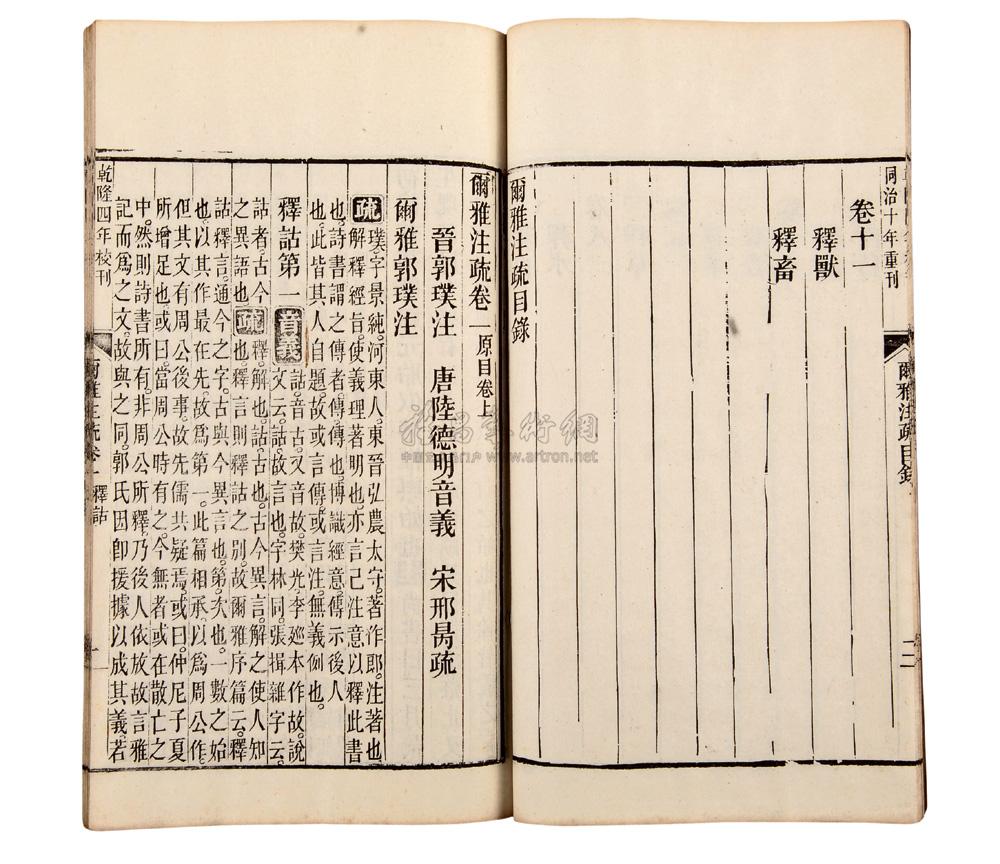 同治十年重刊
卷十一
釋獸
釋畜
爾雅注疏目錄
爾雅注疏目錄
二
爾雅注疏卷一原目卷上
晉郭璞注 唐陸德明音義 宋邢昺疏
爾雅郭璞注
疏璞字景純。河東人。東晉弘農太守。著作郎。注著也
解釋經旨。使義理著明也。亦言己注意以釋此書
也。詩書謂之傳者。傳。傳也。博識經意。傳示後人
也。此皆其人自題。故或言傳。或言注。無義例也。
釋詁第一音義詁。音古。又音故。樊光。李廵本作故。說
文云。詁。故言也。字林同。張揖雜字云。
詁者。古今
之異語也。疏釋。解也。詁。古也。古今異言。解之使人知
也。釋言則釋詁之別。故爾雅序篇云。釋
詁釋言。通今之字。古與今異言也。第。次也。一。數之始
也。以其作最在先。故爲第一。此篇相承以爲周公作。
但其文有周公後事。故先儒共疑焉。或曰。仲尼子夏
所增足也。或曰。當周公時有之。今無者。或在散亡之
中。然則詩書所有。非周公所釋。乃後人依放故言雅
記而爲之文。故與之同。郭氏因卽援據以成其義。若
乾隆四年校刊
爾雅注疏卷一 釋詁
一
雅昌藝術網
www.artron.net